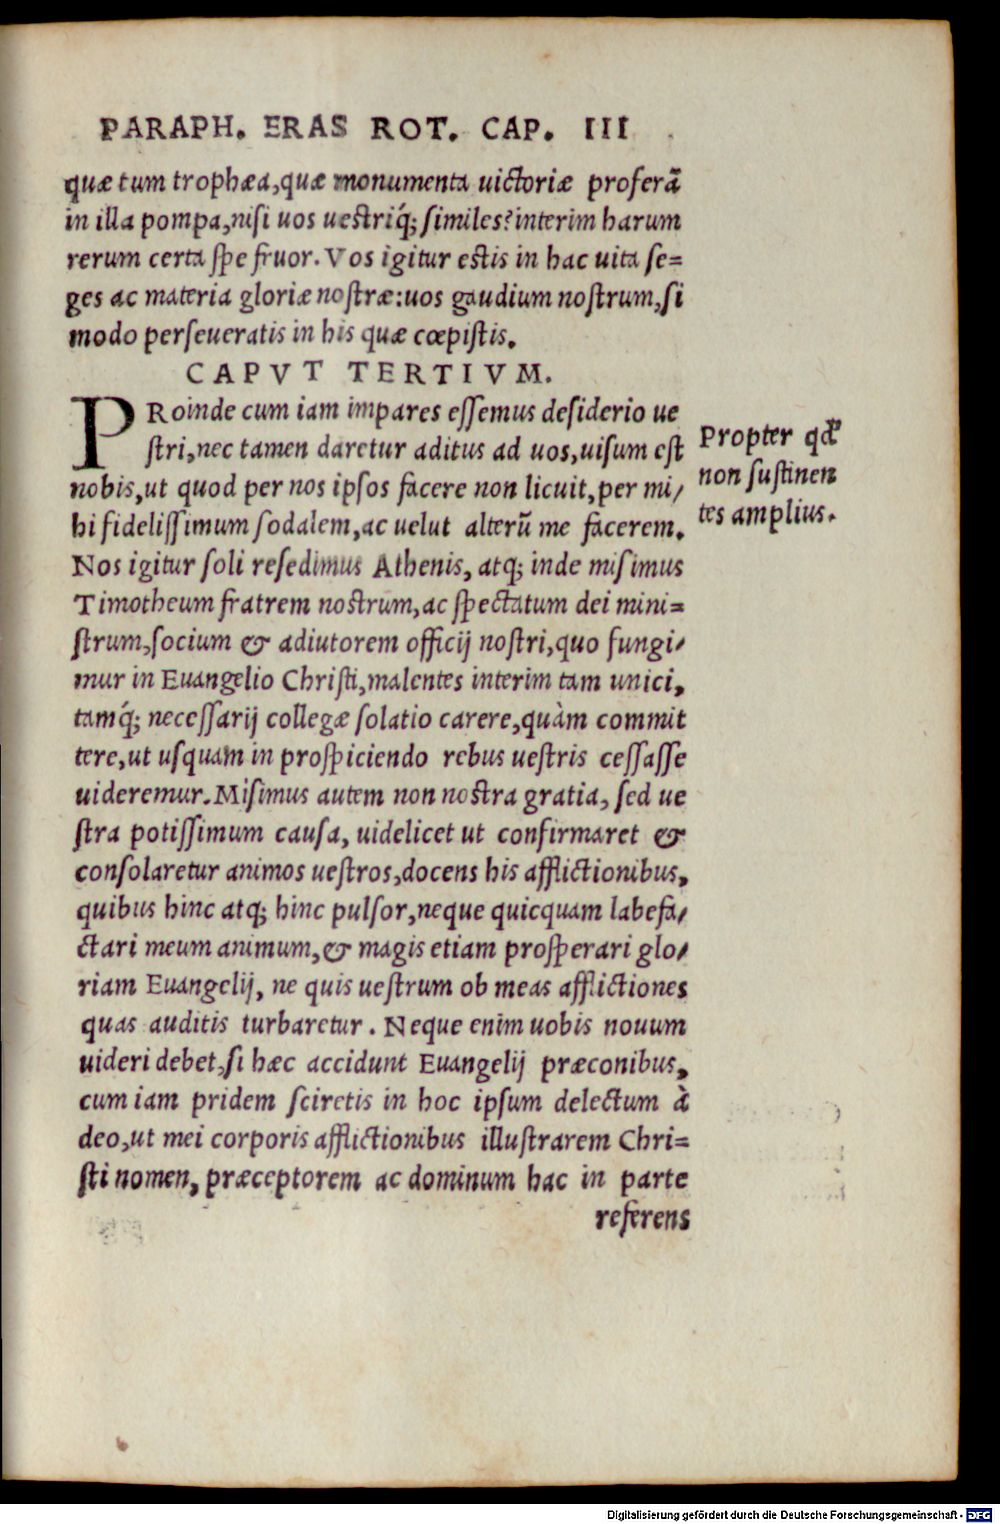 PARAPH. ERAS ROT. CAP. III
quæ tum trophæa, quæ monumenta uictoriæ proferã
in illa pompa, nisi uos uestriq́; similes? interim harum
rerum certa spe fruor. Vos igitur estis in hac uita se=
ges ac materia gloriæ nostræ: uos gaudium nostrum, si
modo perseveratis in his quæ cœpistis.
CAPVT TERTIVM.
PRoinde cum iam impares essemus desiderio ue
stri, nec tamen daretur aditus ad uos, uisum est
nobis, ut quod per nos ipsos facere non licuit, per mi/
hi fidelissimum sodalem, ac uelut alterũ me facerem.
Nos igitur soli resedimus Athenis, atq; inde misimus
Timotheum fratrem nostrum, ac spectatum dei mini=
strum, socium & adiutorem officij nostri, quo fungi/
mur in Euangelio Christi, malentes interim tam unici,
tamq́; necessarij collegæ solatio carere, quàm commit
tere, ut usquam in prospiciendo rebus uestris cessasse
uideremur. Misimus autem non nostra gratia, sed ue
stra potissimum causa, uidelicet ut confirmaret &
consolaretur animos uestros, docens his afflictionibus,
quibus hinc atq; hinc pulsor, neque quicquam labefa/
ctari meum animum, & magis etiam prosperari glo/
riam Euangelij, ne quis uestrum ob meas afflictiones
quas auditis turbaretur. Neque enim uobis nouum
uideri debet, si hæc accidunt Euangelij præconibus,
cum iam pridem sciretis in hoc ipsum delectum à
deo, ut mei corporis afflictionibus illustrarem Chri=
sti nomen, præceptorem ac dominum hac in parte
referens
Propter qđ
non sustinen
tes amplius.
Digitalisierung gefördert durch die Deutsche Forschungsgemeinschaft - DFG